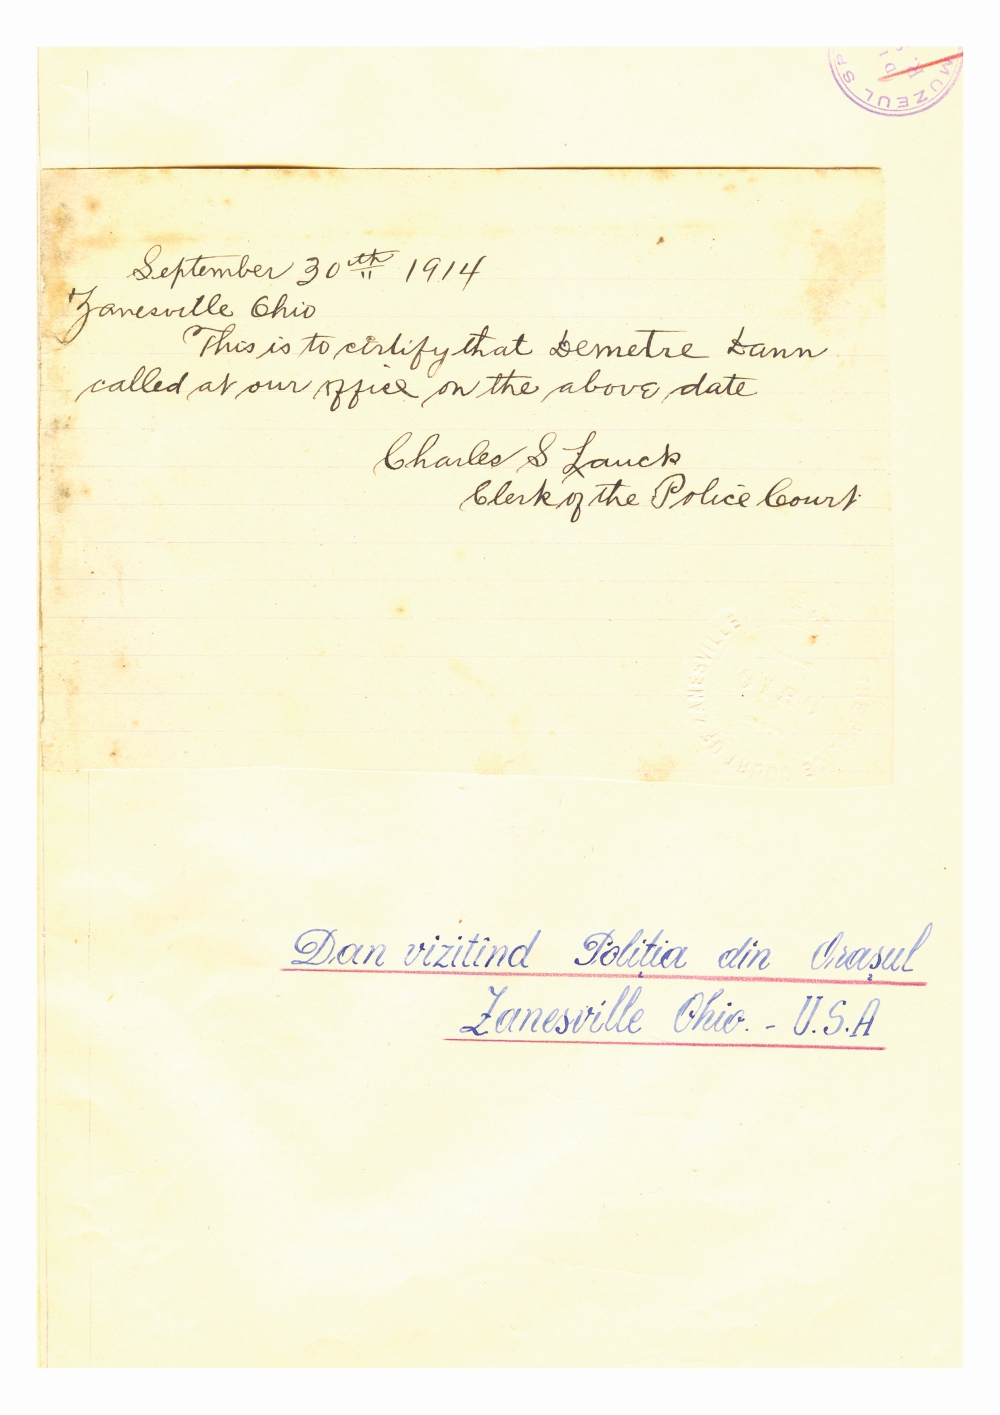 MUZEUL SP
September 30th 1914
Zanesville Ohio
This is to certify that Demetre Dann
called at our office on the above date
Charles S Lauck
Clerk of the Police Court
COURT OF ZANESVILLE
Dan vizitînd Poliția din Orașul
Zanesville Ohio. - U.S.A